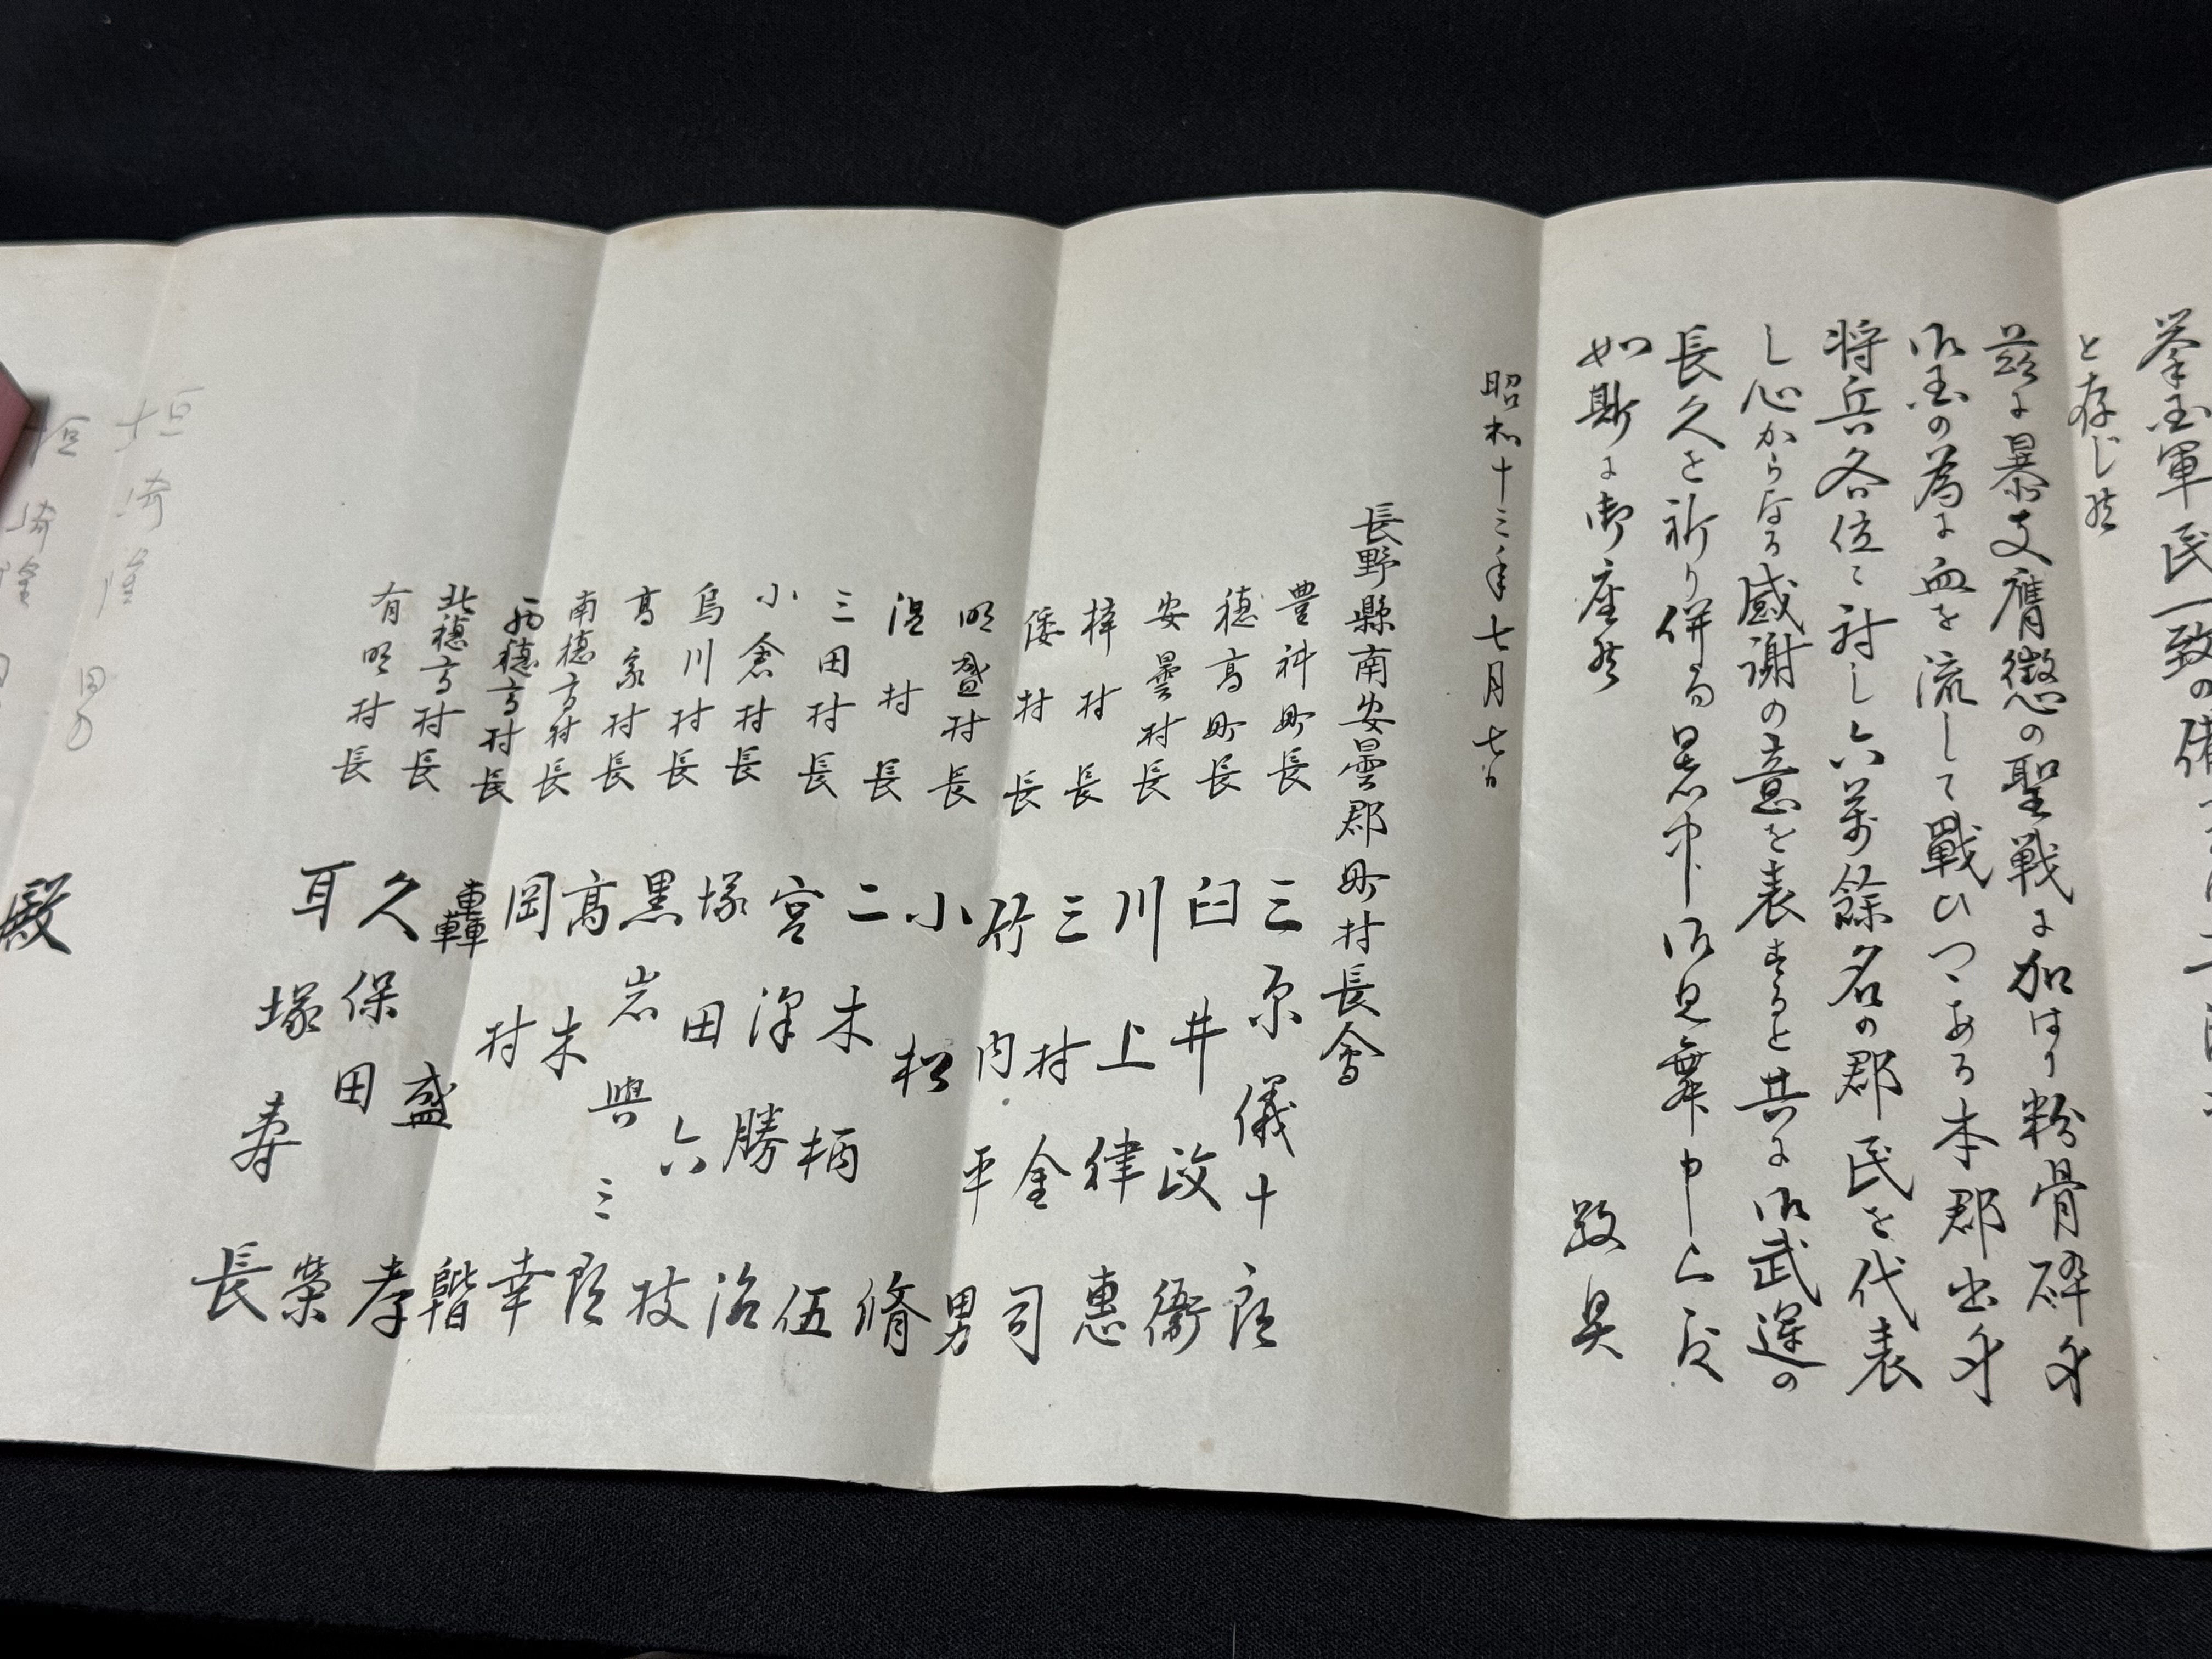 挙国軍民一致の備
と存じ候
茲に暴支膺懲の聖戦に加はり粉骨砕身
御国の為に血を流して戰ひつゝある本郡出身
将兵各位に対し六萬餘名の郡民を代表
し心からなる感謝の意を表すると共に御武運の
長久を祈り併る暑中御見舞申上度
如斯に御座候
敬具
昭和十三年七月七日
長野縣南安曇郡町村長會
豊科町長 三原儀十郎
穂高町長 臼井政衛
安曇村長 川上律惠
梓村長 三村金司
倭村長 竹内平男
明盛村長 小松脩
温村長 二木柄伍
三田村長 宮澤勝治
小倉村長 塚田六枝
烏川村長 黒岩與三郎
高家村長 高木幸
南穂高村長 岡村階
西穂高村長 轟盛孝
北穂高村長 久保田榮
有明村長 耳塚寿長
垣崎隆男
垣崎隆
殿